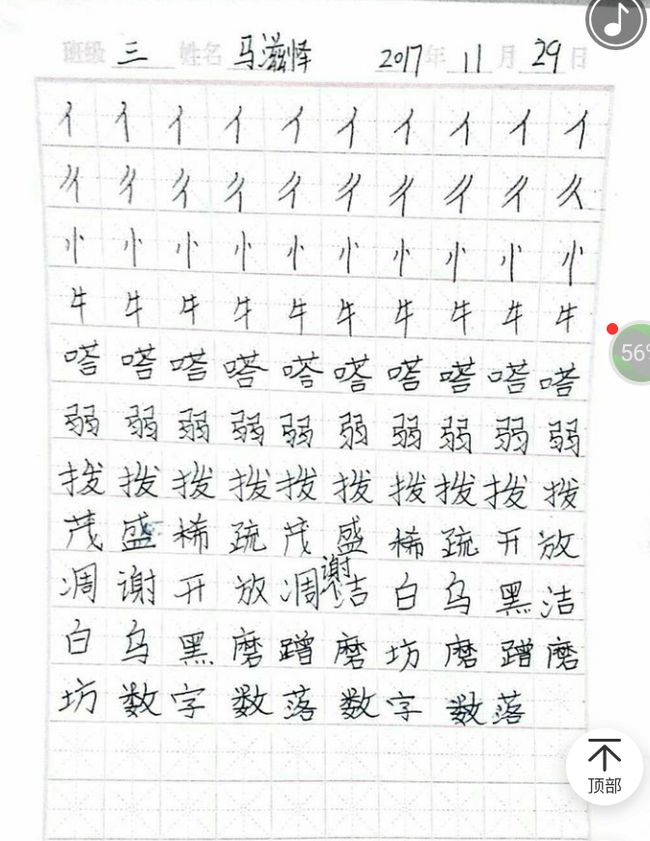 班级 三 姓名 马滋怿 2017年 11月 29日
亻 亻 亻 亻 亻 亻 亻 亻 亻 亻
彳 彳 彳 彳 彳 彳 彳 彳 彳 彳
忄 忄 忄 忄 忄 忄 忄 忄 忄 忄
牜 牜 牜 牜 牜 牜 牜 牜 牜 牜
嗒 嗒 嗒 嗒 嗒 嗒 嗒 嗒 嗒 嗒
弱 弱 弱 弱 弱 弱 弱 弱 弱 弱
拨 拨 拨 拨 拨 拨 拨 拨 拨 拨
茂 盛 稀 疏 茂 盛 稀 疏 开 放
凋 谢 开 放 凋 谢 洁 白 乌 黑 洁
白 乌 黑 磨 蹭 磨 坊 磨 蹭 磨
坊 数 字 数 落 数 字 数 落
56%
顶部